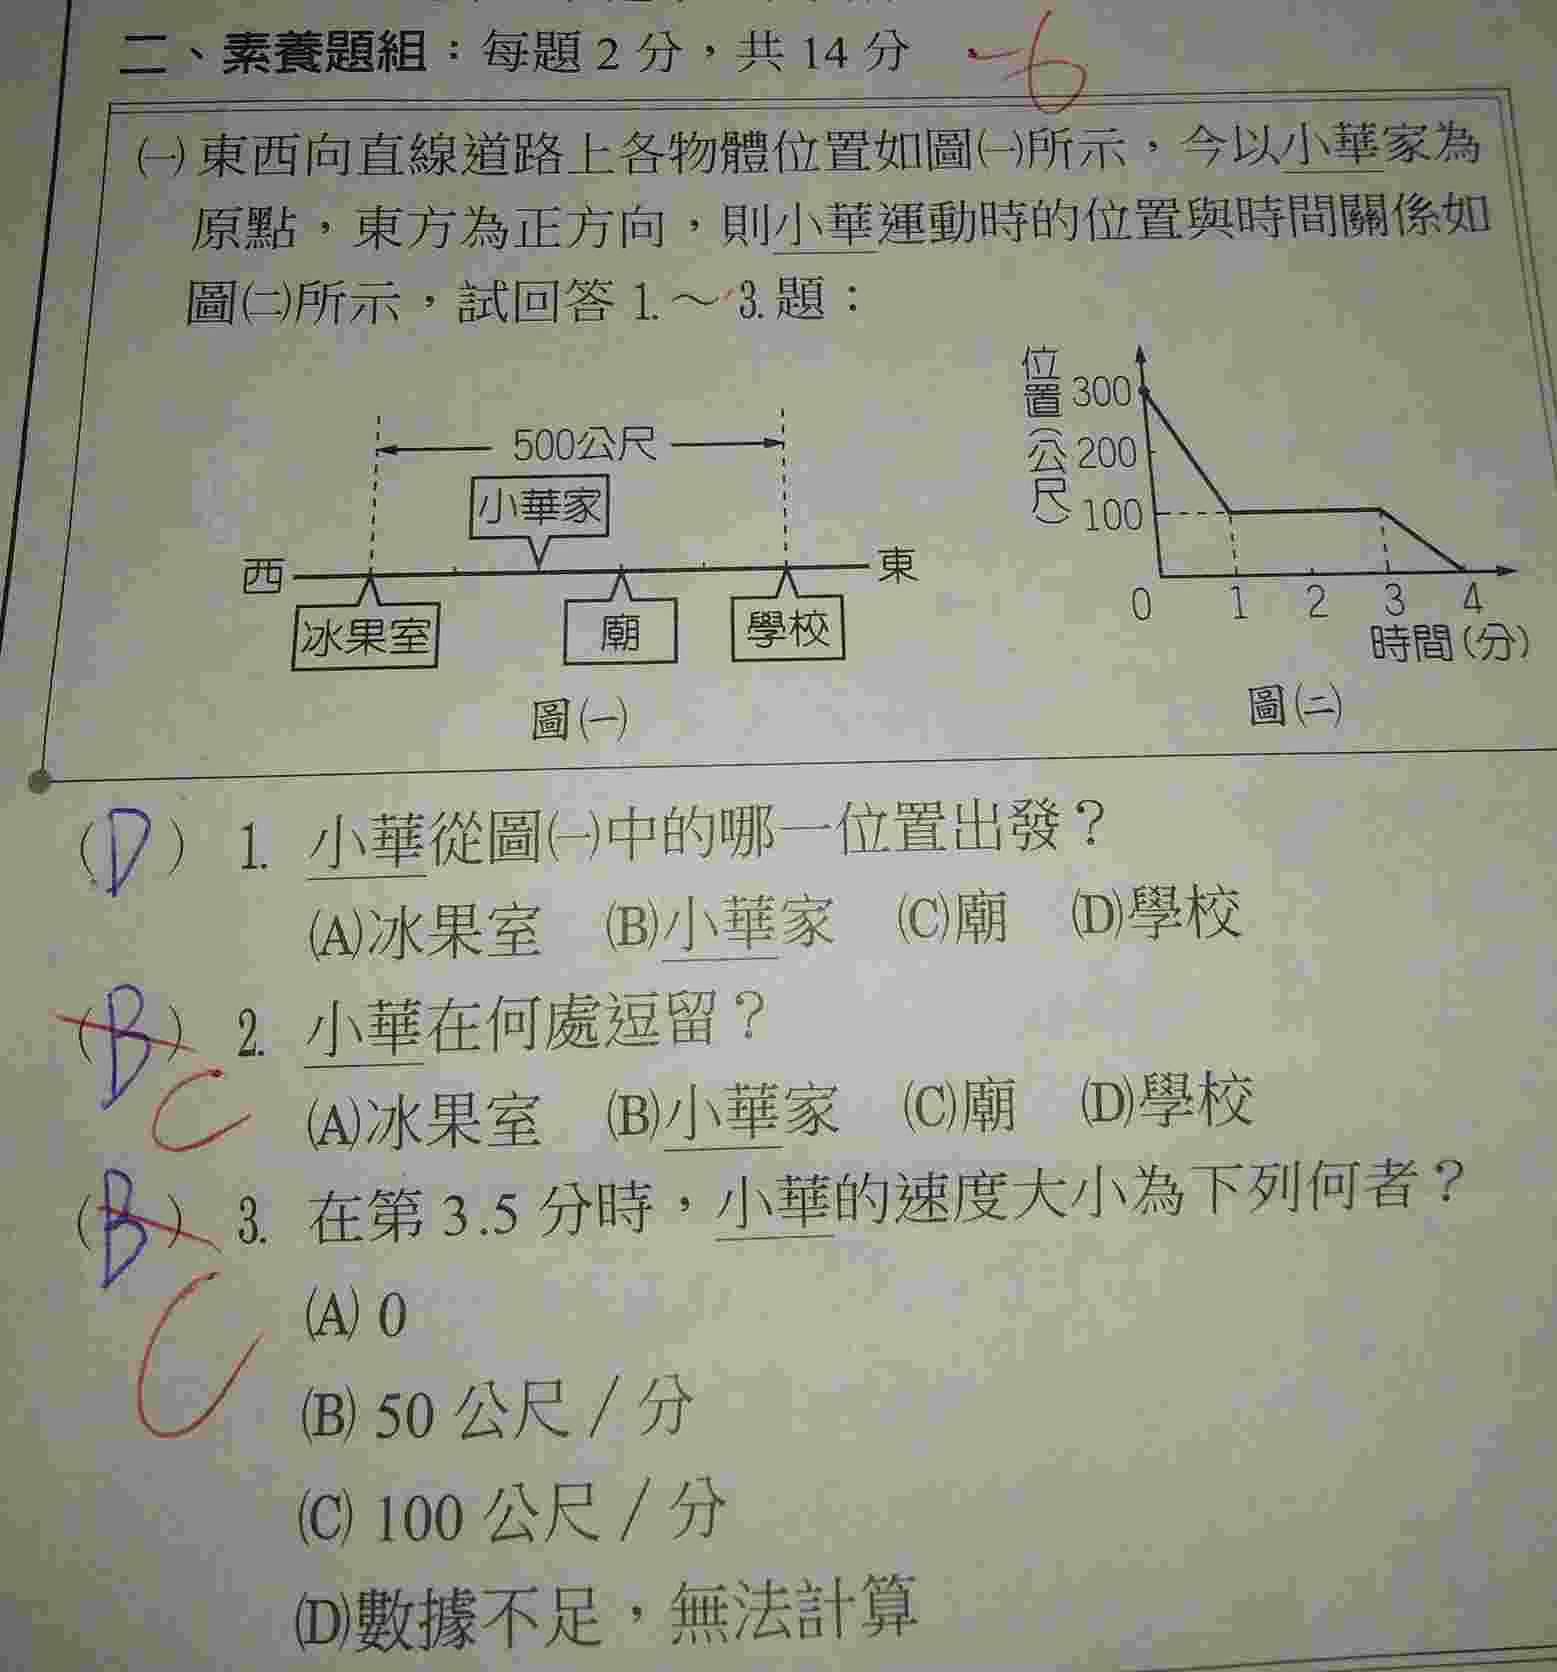 二、素養題組：每題 2 分，共 14 分 -6
㈠東西向直線道路上各物體位置如圖㈠所示，今以小華家為
原點，東方為正方向，則小華運動時的位置與時間關係如
圖㈡所示，試回答 1. ～ 3. 題：
500公尺
小華家
西
東
冰果室
廟
學校
圖㈠
位置(公尺)
300
200
100
0 1 2 3 4
時間(分)
圖㈡
(D) 1. 小華從圖㈠中的哪一位置出發？
(A)冰果室 (B)小華家 (C)廟 (D)學校
(B) 2. 小華在何處逗留？
C
(A)冰果室 (B)小華家 (C)廟 (D)學校
(B) 3. 在第 3.5 分時，小華的速度大小為下列何者？
C
(A) 0
(B) 50 公尺／分
(C) 100 公尺／分
(D)數據不足，無法計算